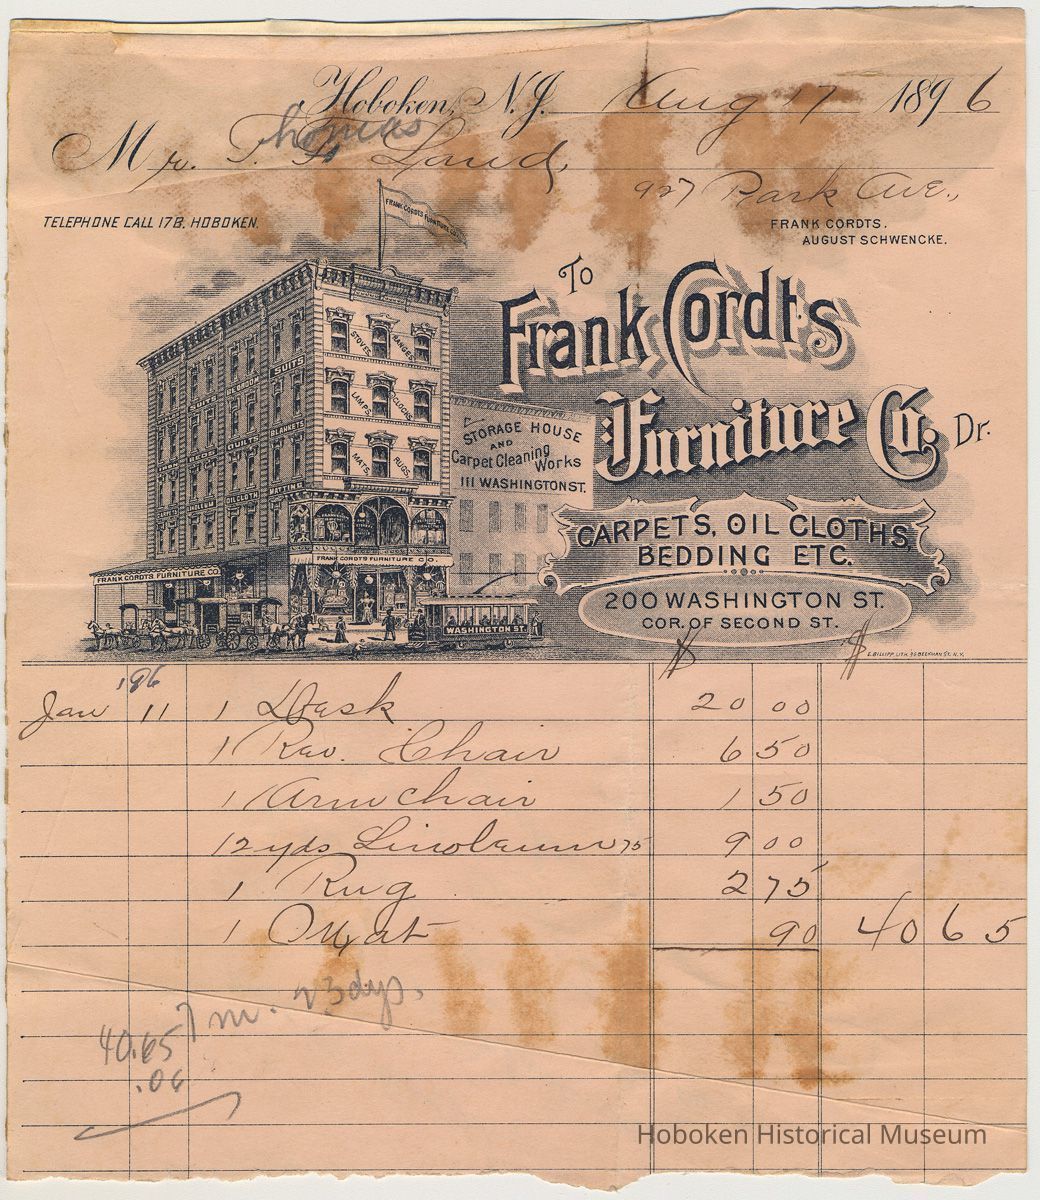 Hoboken, N.J. Aug 17 1896
Thomas
Mr. T. H. Laud,
927 Park Ave.,
TELEPHONE CALL 17B, HOBOKEN.
FRANK CORDTS.
AUGUST SCHWENCKE.
FRANK CORDTS FURNITURE CO.
To
Frank Cordts
Furniture Co. Dr.
STOVES RANGES
LAMPS CLOCKS
MATS RUGS
BEDROOM SUITS
QUILTS BLANKETS
OIL CLOTH MATTING
STORAGE HOUSE
AND
Carpet Cleaning
Works
111 WASHINGTON ST.
CARPETS, OIL CLOTHS,
BEDDING ETC.
200 WASHINGTON ST.
COR. OF SECOND ST.
FRANK CORDTS FURNITURE CO.
FRANK CORDTS FURNITURE CO
WASHINGTON ST.
$ $
'96
Jan 11 1 Desk 20 00
1 Rev. Chair 6 50
1 Armchair 1 50
12 yds Linoleum 75 9 00
1 Rug 2 75
1 Mat 90 40 65
7 m. 23 dys.
40.65
.06
Hoboken Historical Museum